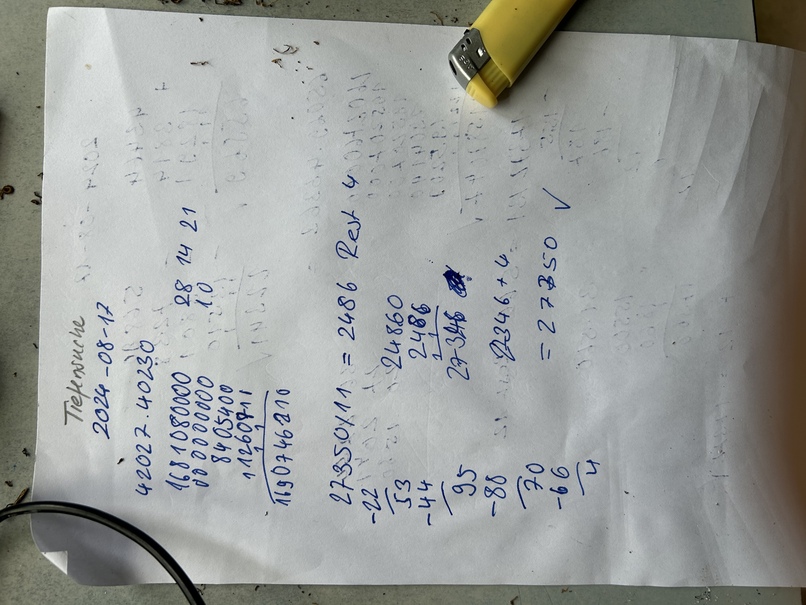 Tiefensuche
2024-08-17
42027·40230
1681080000 28 14 21
0000000000 1.0
8405400
1690746210
27350/11 = 2486 Rest 4
-22
53 24860
-44 2486
1 1
95 27346
-88 27346+4
70 = 27350 √
-66
4